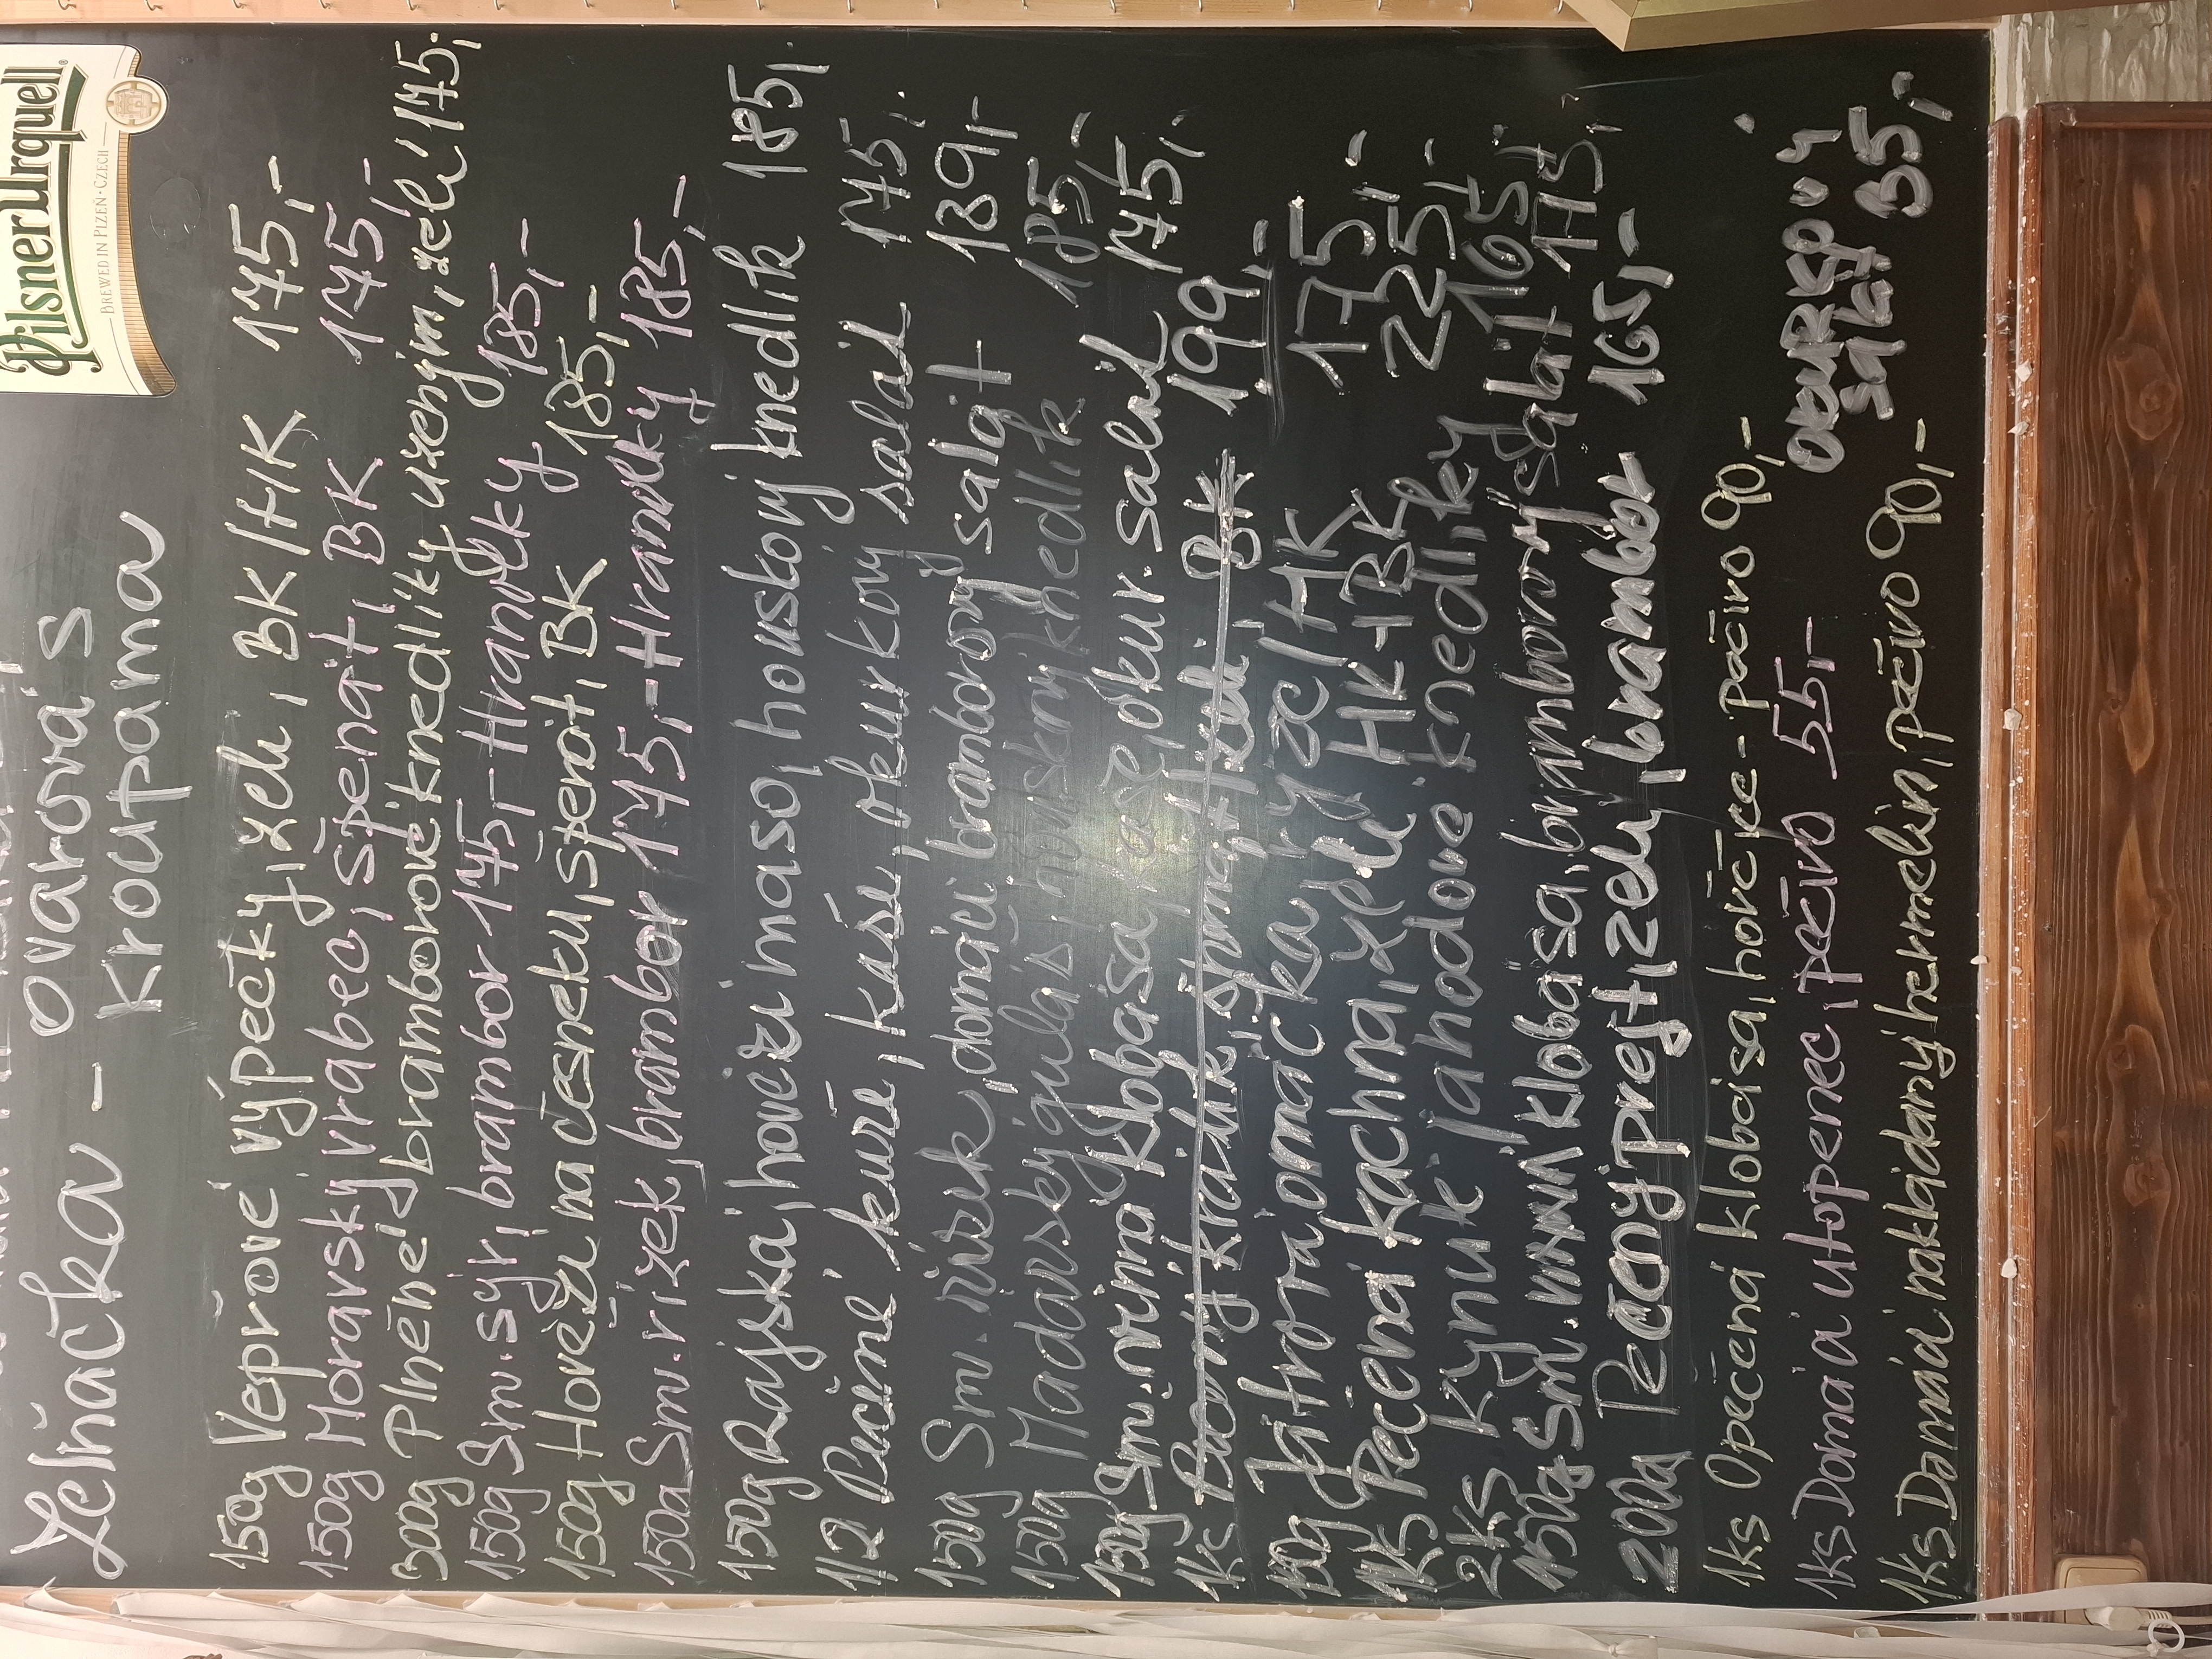 Pilsner Urquell
BREWED IN PLZEŇ · CZECH
Zelňačka - ovarová s
kroupama
150g Vepřové výpečky, zelí, BK/HK 175,-
150g Moravský vrabec, špenát, BK 175,-
300g Plněné bramborové knedlíky uzeným, zelí 175,-
150g Sm. sýr, brambor 175,- Hranolky 185,-
150g Hovězí na česneku, špenát, BK 185,-
150g Sm. řízek, brambor 175,- Hranolky 185,-
150g Rajská, hovězí maso, houskový knedlík 185,-
1/2 Pečené kuře, kaše, okurkový salát 175,-
150g Sm. řízek, domácí bramborový salát 189,-
150g Maďarský guláš, houskový knedlík 185,-
150g Sm. vinná klobása, kaše, okur. salát 175,-
1ks Pečený králík, špenát, zelí, BK 199,-
150g Játrová omáčka, rýže/HK 175,-
1ks Pečená kachna, zelí HK+BK 225,-
2ks Kynuté jahodové knedlíky 165,-
150g Sm. vinná klobása, bramborový salát 175,-
200g Pečený prejt, zelí, brambor 165,-
1ks Opečená klobása, hořčice - pečivo 90,-
1ks Domácí utopenec, pečivo 55,-
okurkový
salát 35,-
1ks Domácí nakládaný hermelín, pečivo 90,-